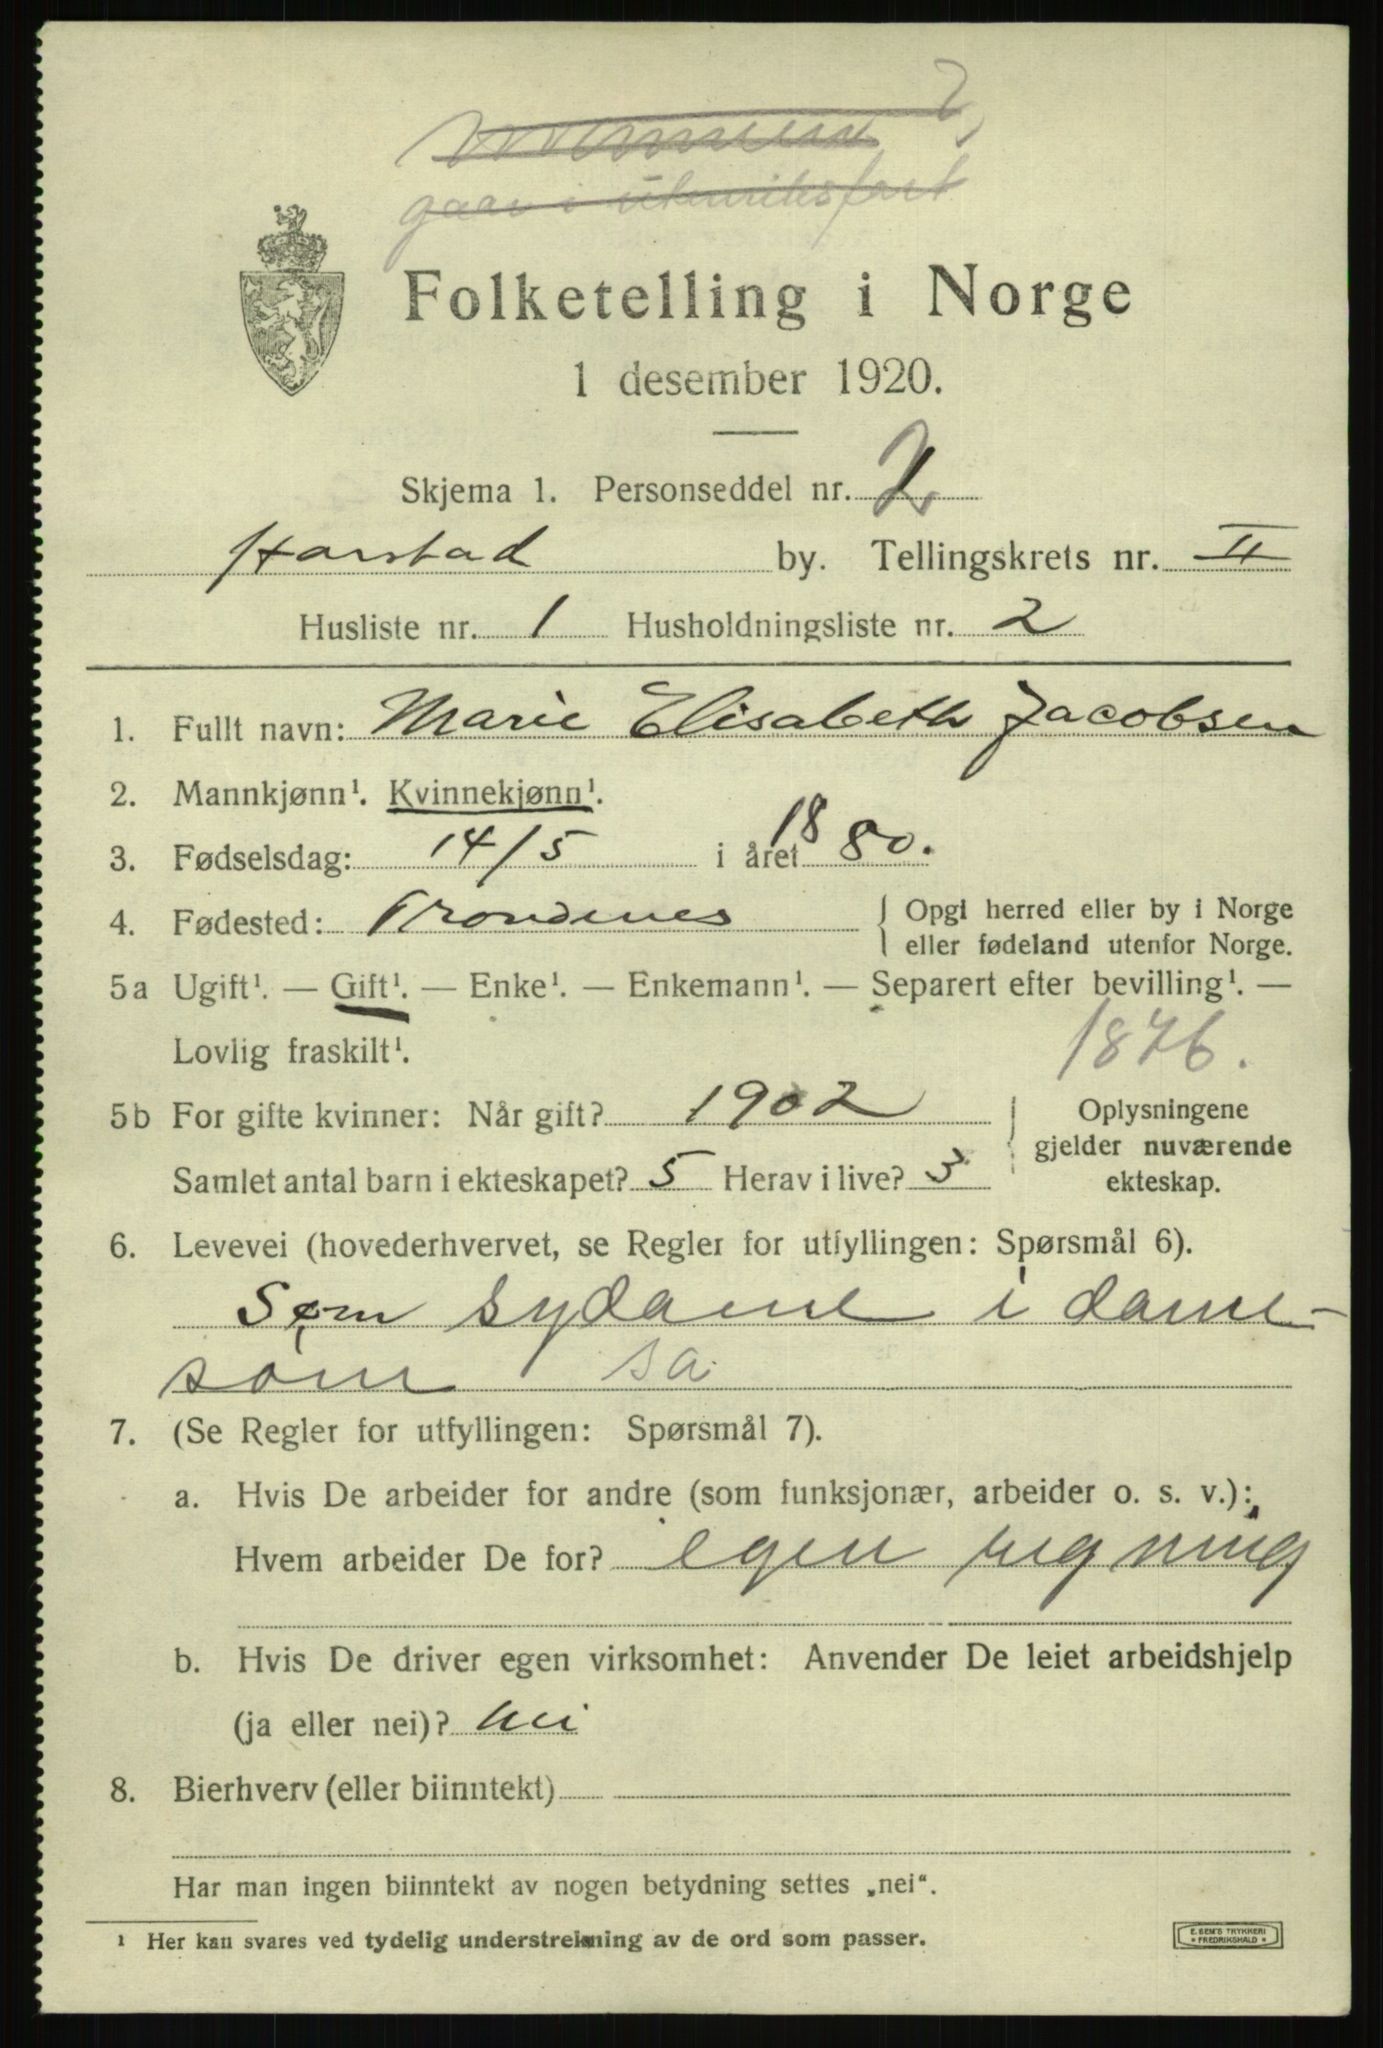 gaar i utenriksfart
Folketelling i Norge
1 desember 1920.
Skjema 1. Personseddel nr. 2
Harstad by. Tellingskrets nr. II
Husliste nr. 1 Husholdningsliste nr. 2
1. Fullt navn: Marie Elisabeth Jacobsen
2. Mannkjønn¹. Kvinnekjønn¹.
3. Fødselsdag: 14/5 i året 1880.
4. Fødested: Trondenes { Opgi herred eller by i Norge
eller fødeland utenfor Norge.
5a Ugift¹. — Gift¹. — Enke¹. — Enkemann¹. — Separert efter bevilling¹. —
Lovlig fraskilt¹. 1876.
5b For gifte kvinner: Når gift? 1902
Samlet antal barn i ekteskapet? 5 Herav i live? 3
Oplysningene
gjelder nuværende
ekteskap.
6. Levevei (hovederhvervet, se Regler for utfyllingen: Spørsmål 6).
Som sydame i dame-
søm sa.
7. (Se Regler for utfyllingen: Spørsmål 7).
a. Hvis De arbeider for andre (som funksjonær, arbeider o. s. v.):
Hvem arbeider De for? egen regning
b. Hvis De driver egen virksomhet: Anvender De leiet arbeidshjelp
(ja eller nei)? nei
8. Bierhverv (eller biinntekt)
Har man ingen biinntekt av nogen betydning settes „nei“.
¹ Her kan svares ved tydelig understrekning av de ord som passer.
E. SEM'S TRYKKERI
* FREDRIKSHALD *